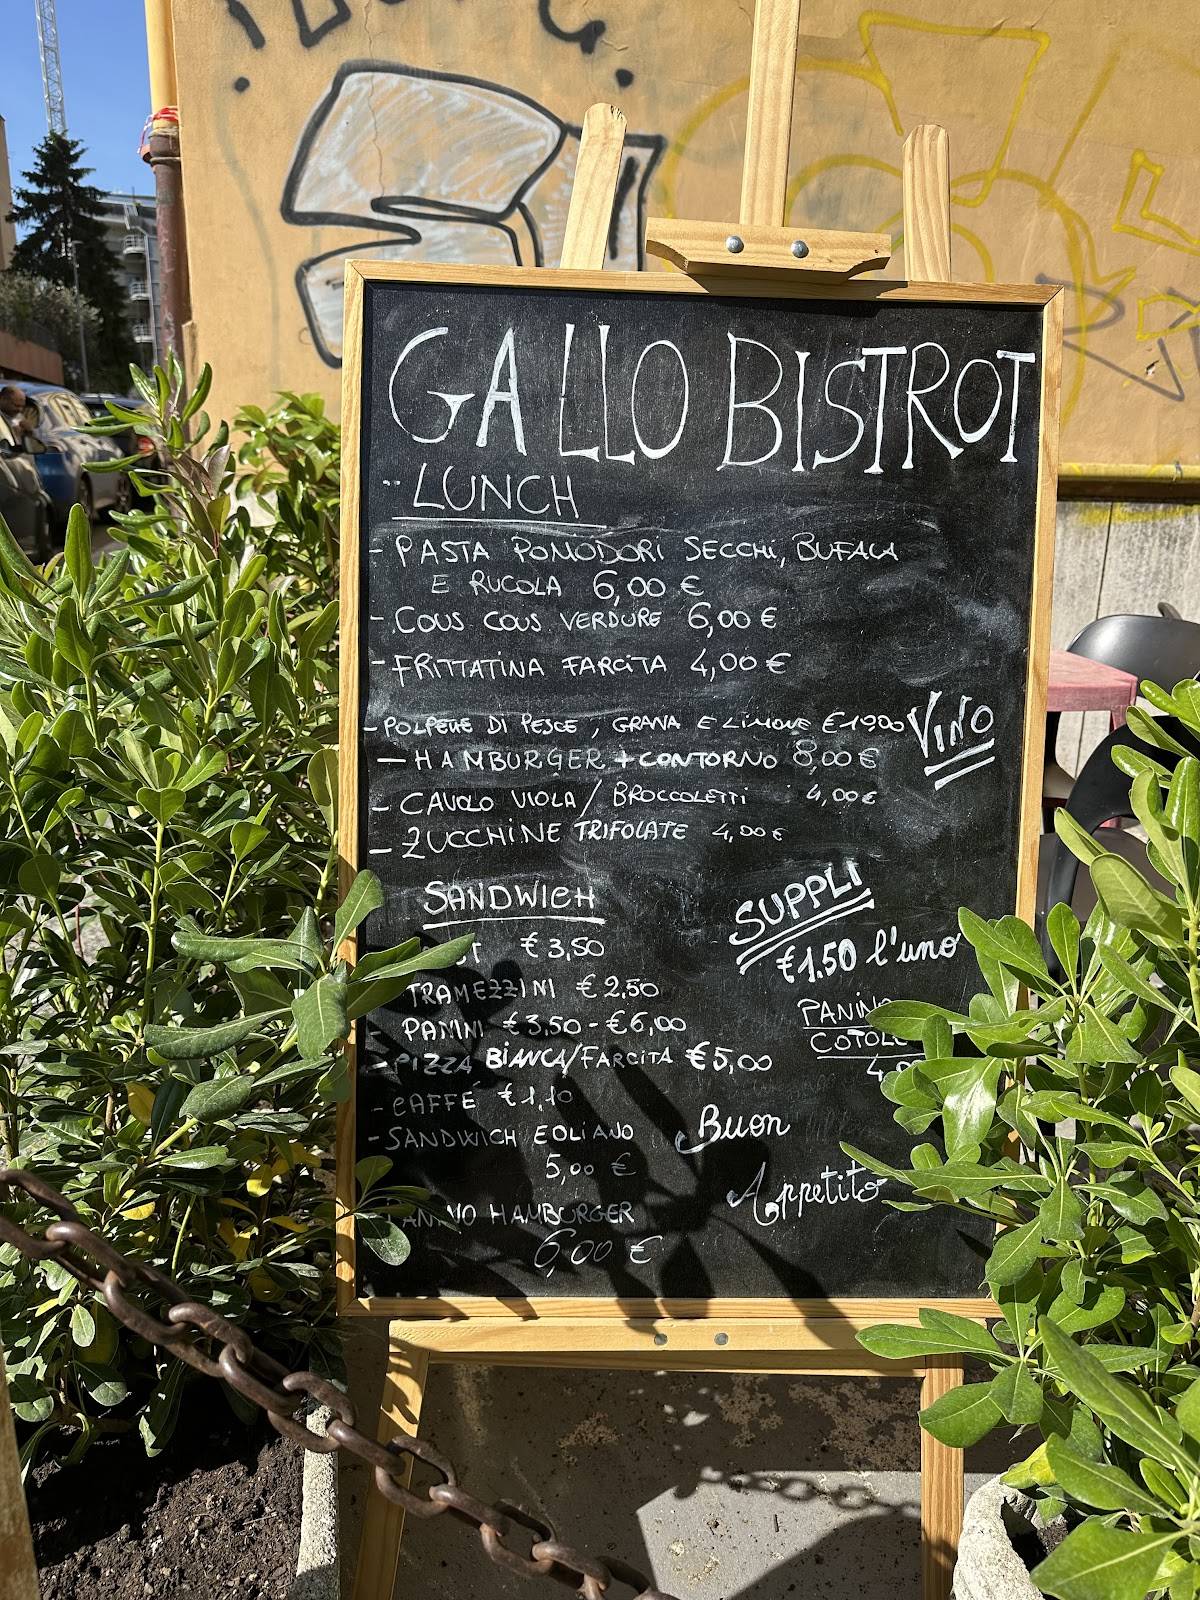 GALLO BISTROT
LUNCH
- PASTA POMODORI SECCHI, BUFALA
E RUCOLA 6,00 €
- COUS COUS VERDURE 6,00 €
- FRITTATINA FARCITA 4,00 €
- POLPETTE DI PESCE, GRANA E LIMONE
VINO
- HAMBURGER + CONTORNO 8,00 €
- CAVOLO VIOLA / BROCCOLETTI 4,00 €
- ZUCCHINE TRIFOLATE 4,00 €
SANDWICH
€ 3,50
TRAMEZZINI € 2,50
- PANINI € 3,50 - € 6,00
- PIZZA BIANCA/FARCITA € 5,00
- CAFFÉ € 1,10
- SANDWICH EOLIANO
5,00 €
PANINO HAMBURGER
6,00 €
SUPPLI
€1.50 l'uno
PANINO
Buon
Appetito